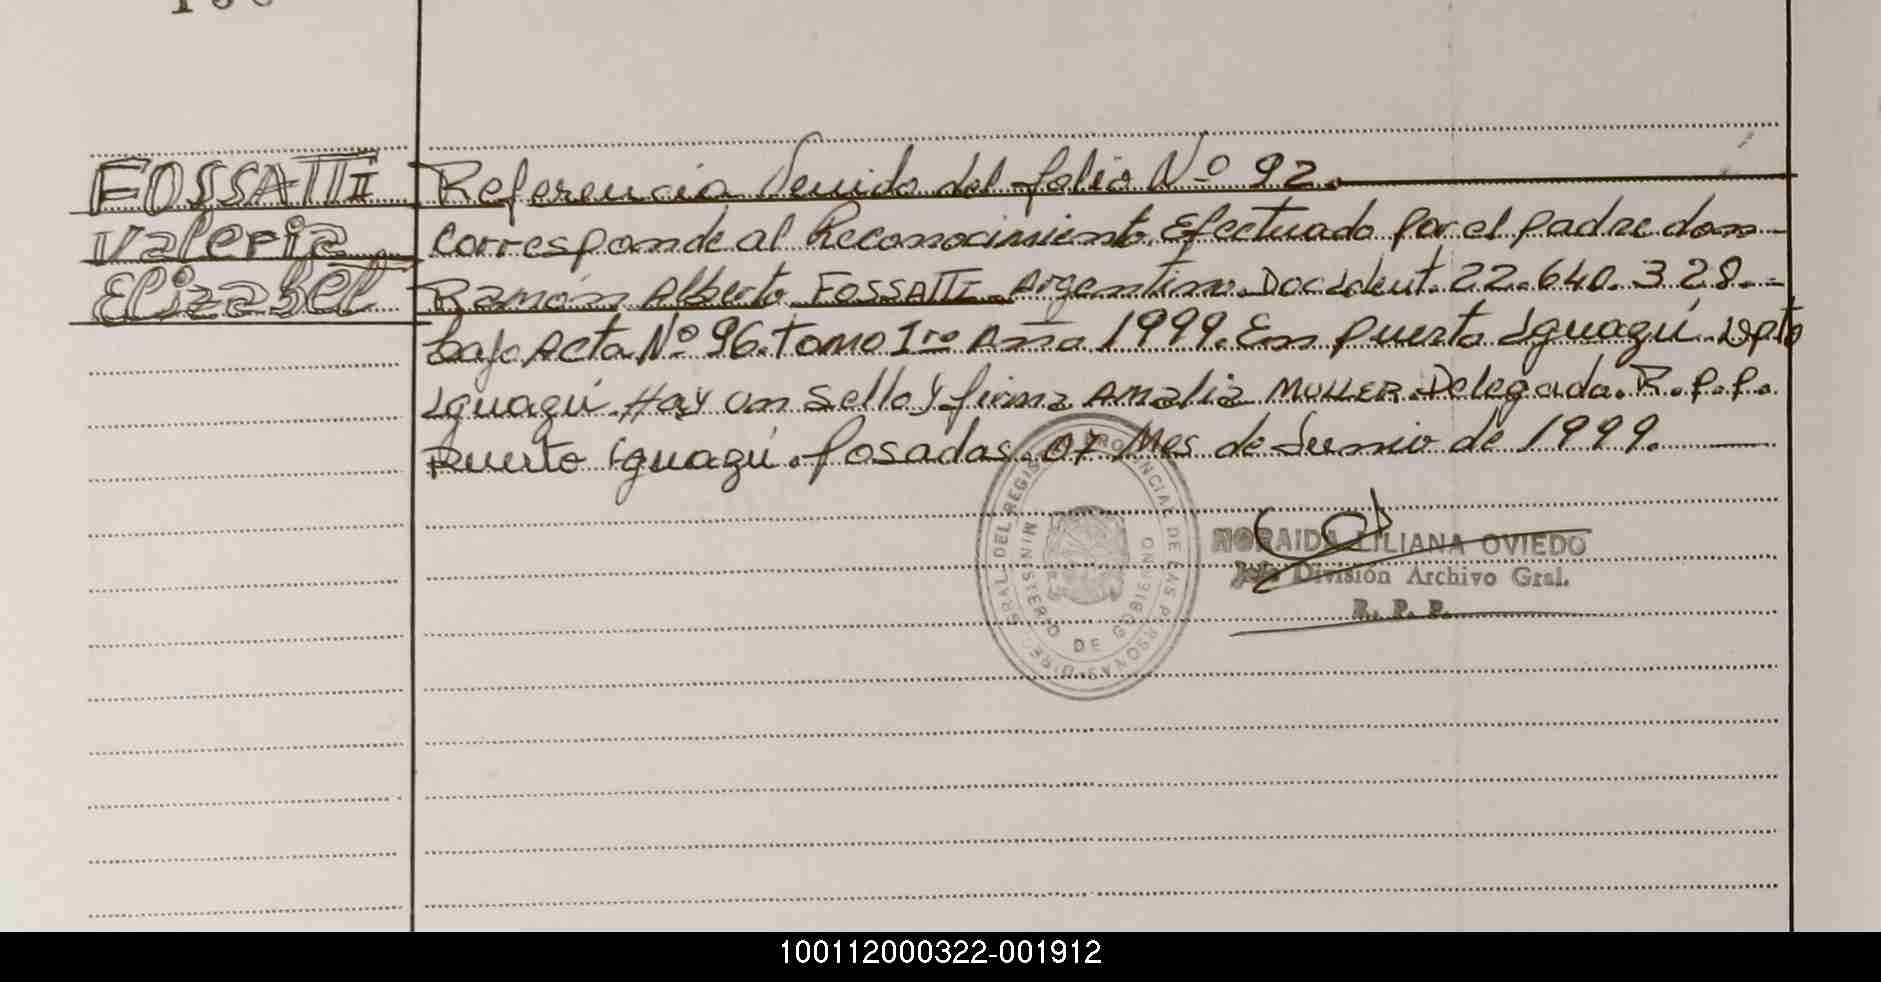 FOSSATTI
Valeria
Elizabet
Referencia Venido del folio Nº 92.
Corresponde al Reconocimiento Efectuado por el padre don
Ramón Alberto FOSSATTI Argentino. Doc. Ident. 22.640.328.-
bajo Acta Nº 96. Tomo 1ro Año 1999. En Puerto Iguazú. Dpto
Iguazú. Hay un sello y firma Amalia MULLER. Delegada. R.P.P.
Puerto Iguazú. Posadas. 07 Mes de Junio de 1999.
GRAL. DEL REGISTRO PROVINCIAL DE LAS PERSONAS
MINISTERIO DE GOBIERNO
NORAIDA LILIANA OVIEDO
Jefe División Archivo Gral.
R. P. P.
100112000322-001912